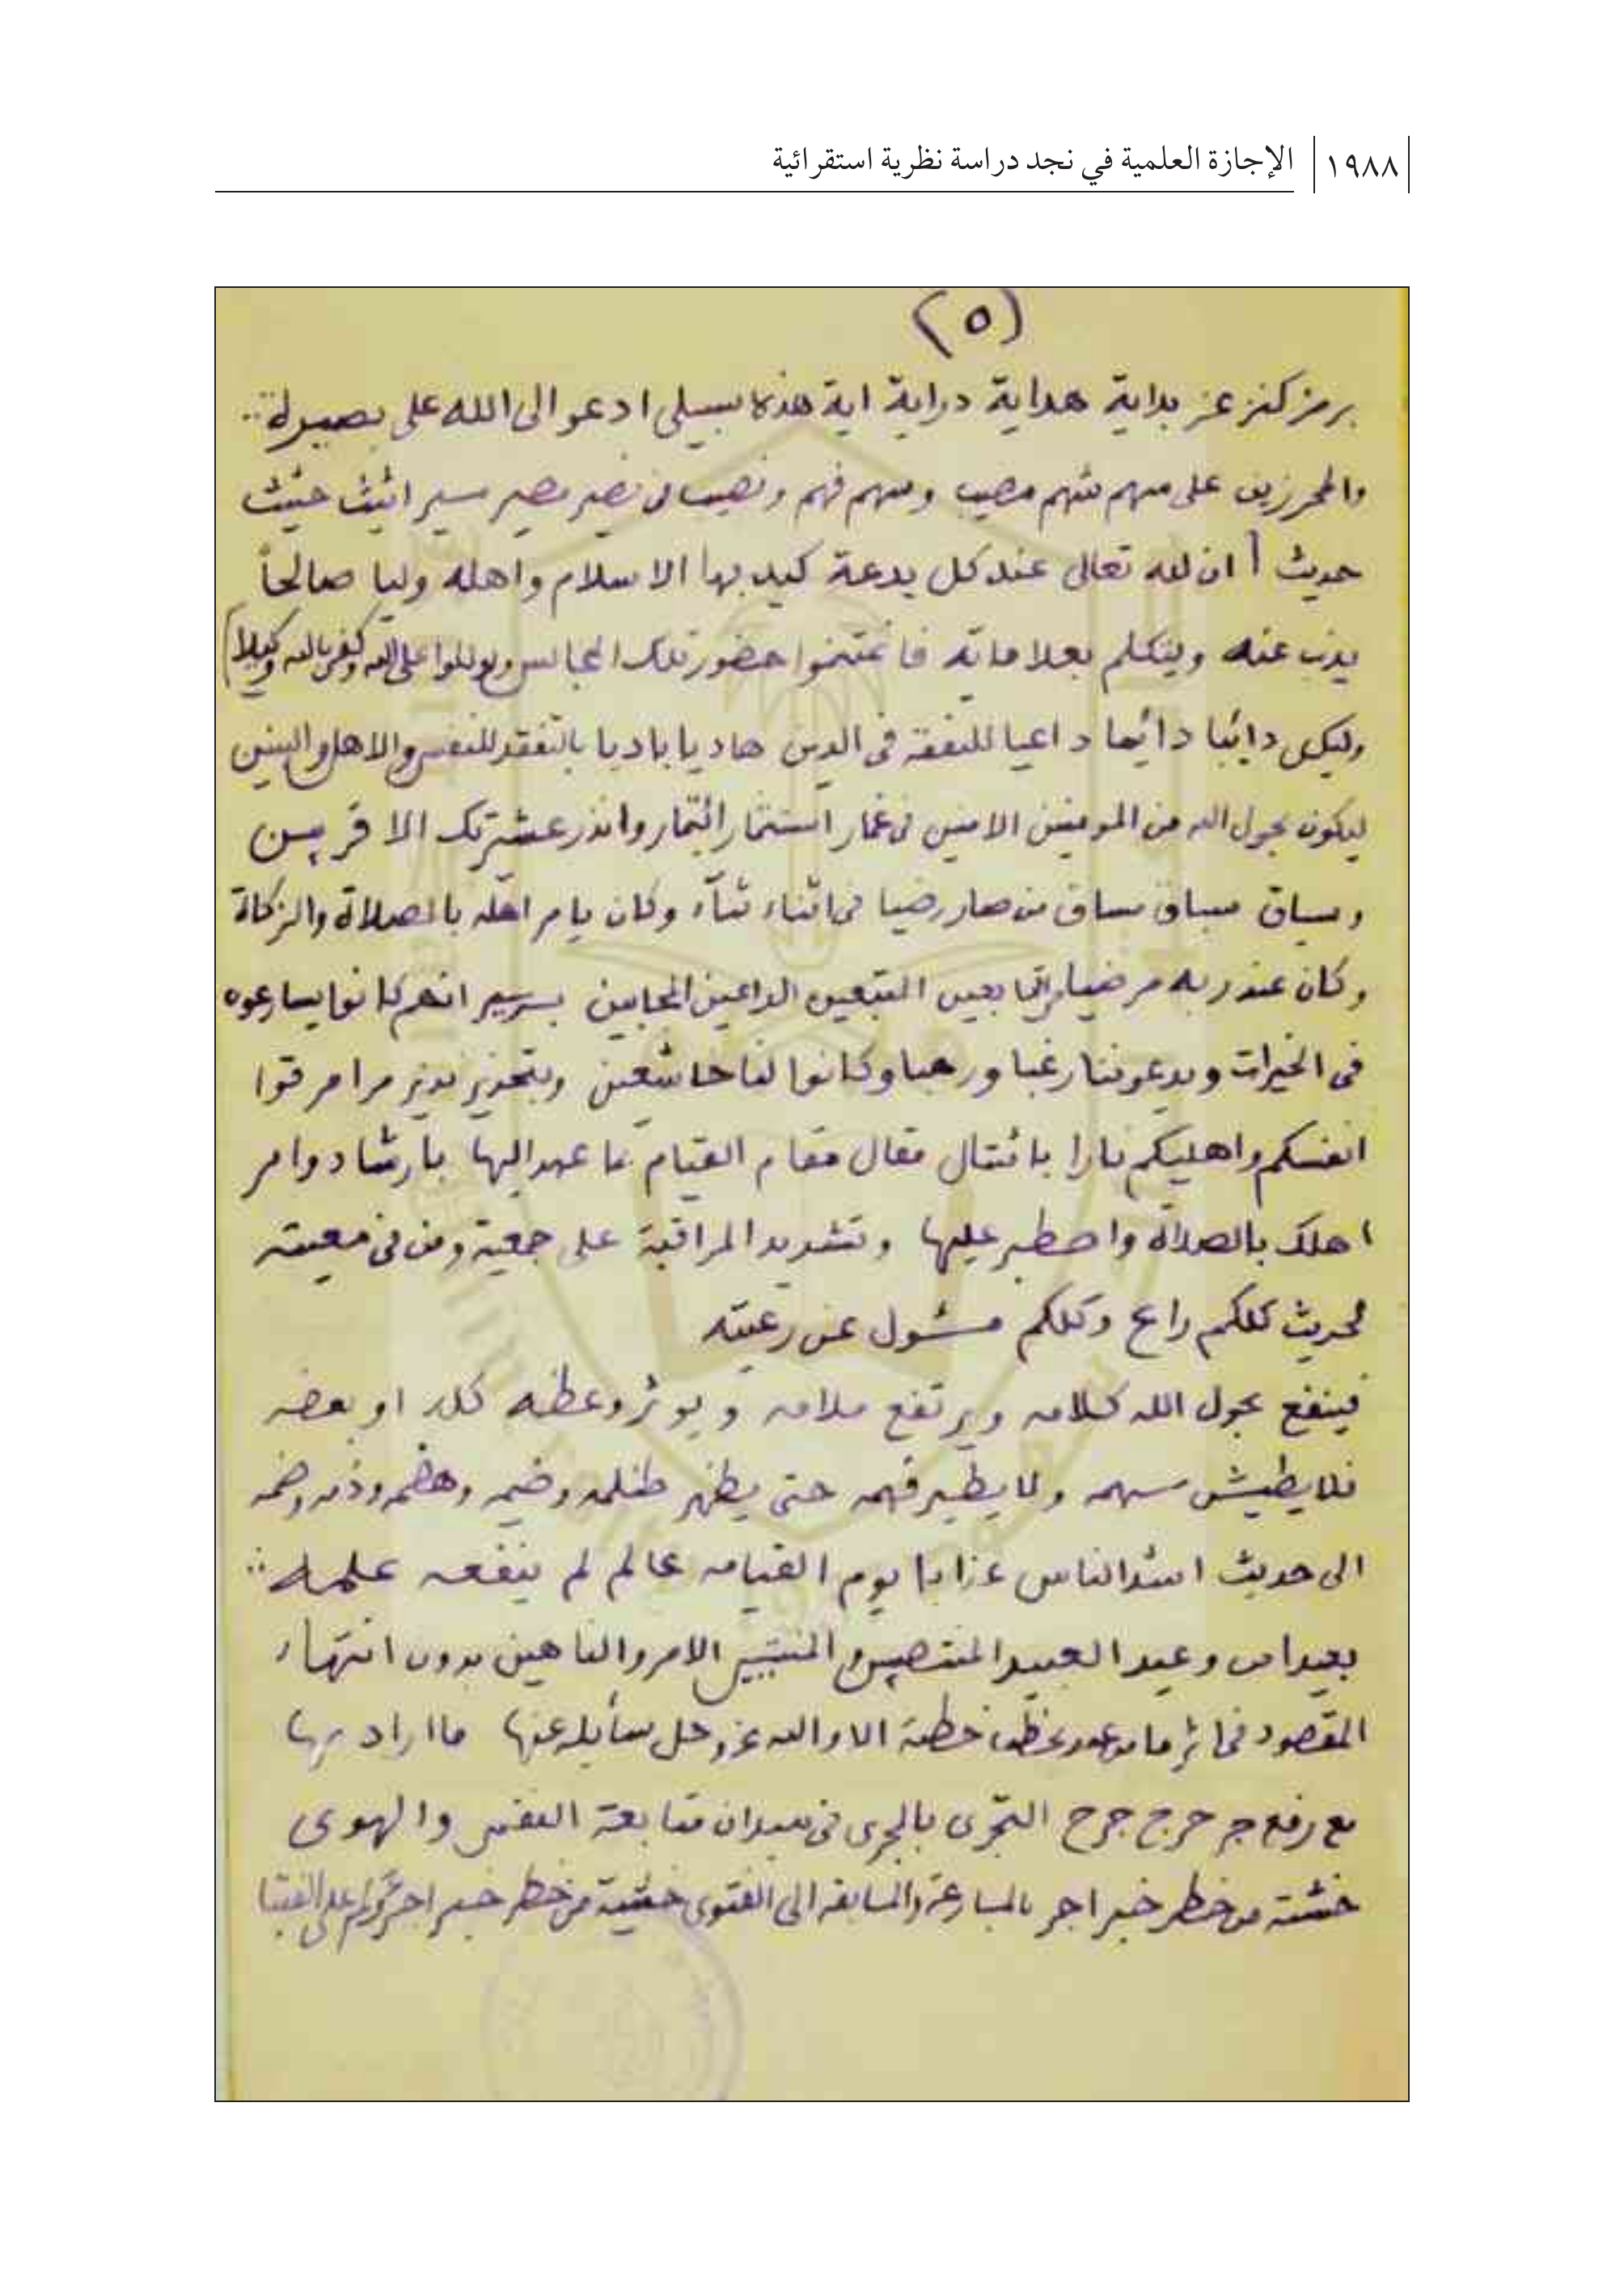 ١٩٨٨ الإجازة العلمية في نجد دراسة نظرية استقرائية
(٥)
برمز كنز عز بداية هداية دراية اية هذه سبيلى ادعو الى الله على بصيرة
والمحرزين على سهم مصيب وسهم فهم ونصيب من سير اثيث حثيث
حديث ان لله تعالى عند كل بدعة كيد بها الاسلام واهله وليا صالحاً
يذب عنه ويتكلم بعلاماته فاغتنموا حضور تلك المجالس وتوكلوا على الله وكفى بالله وكيلا
وليكن دائبا دائما داعيا للتفقه فى الدين هاديا باديا بالتفقد للنفس والاهل والبنين
ليكون بحول الله من المومنين الامنين فى غمار استثمار ائتمار وانذر عشيرتك الاقربين
وسياق مساق من صار رضيا فى اثناء ثناء وكان يامر اهله بالصلاة والزكاة
وكان عند ربه مرضيا التابعين المتبعين الداعين المجابين بسر سير انهم كانوا يسارعون
فى الخيرات ويدعوننا رغبا ورهبا وكانوا لنا خاشعين وبتحذير نذير مرامر قوا
انفسكم واهليكم نارا بامتثال مقال مقام القيام بما عهد اليها بارشاد وامر
اهلك بالصلاة واصطبر عليها وتشديد المراقبة على جمعية ومن فى معيته
لحديث كلكم راع وكلكم مسئول عن رعيته
فينفع بحول الله كلامه ويرتفع ملامه ويوثر وعظه كله او بعضه
فلا يطيش سهمه ولا يطير فهمه حتى يظهر ظلمه وضيمه وهظمه وذمه وضمه
الى حديث اشد الناس عذابا يوم القيامه عالم لم ينفعه علمه
بعيدا من وعيد العبيد المنتصبين الامر والناهين بدون انتهار
المقصود فى اثر ما من عبد يخطب خطبة الا والله عز وجل سايله عنها ما اراد بها
مع رفع حرج جرح التجرى بالجرى فى ميدان متابعة النفس والهوى
خشية من خطر خبر اجر بالمسارعة والمسابقه الى الفتوى خشية من خطر خبر اجرؤكم على الفتيا